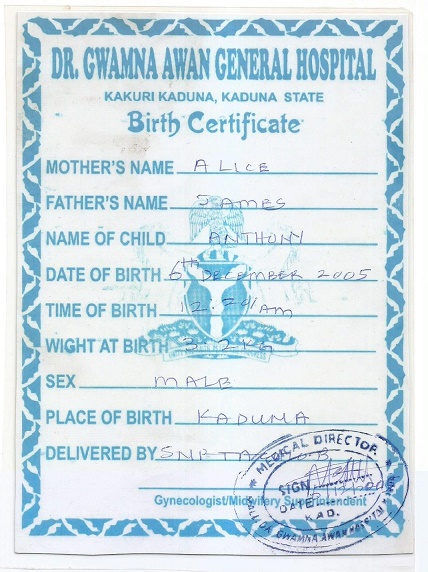 DR. GWAMNA AWAN GENERAL HOSPITAL
KAKURI KADUNA, KADUNA STATE
Birth Certificate
MOTHER'S NAME ALICE
FATHER'S NAME JAMES
NAME OF CHILD ANTHONY
DATE OF BIRTH 6th DECEMBER 2005
TIME OF BIRTH AM
WIGHT AT BIRTH 3.2KG
SEX MALE
PLACE OF BIRTH KADUNA
DELIVERED BY
MEDICAL DIRECTOR
SIGN
DATE
KAD.
DR. GWAMNA AWAN HOSPITAL
Gynecologist/Midwifery Superintendent